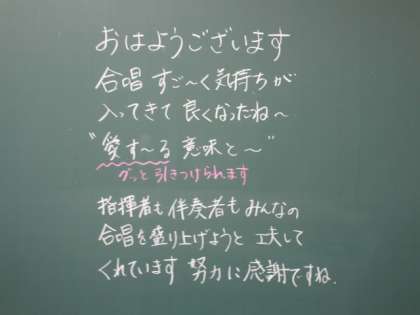 おはようございます
合唱 すご〜く気持ちが
入ってきて 良くなったね〜
"愛す〜る 意味と〜"
グッと 引きつけられます
指揮者も伴奏者も みんなの
合唱を盛り上げようと 工夫して
くれています 努力に感謝ですね.